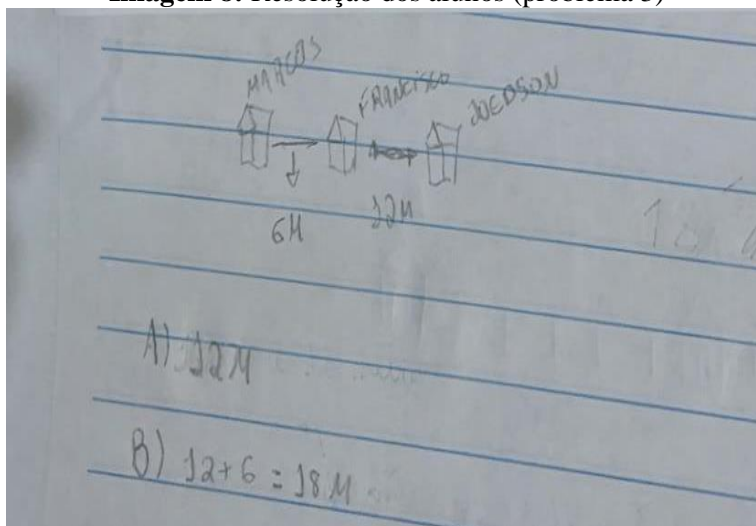 MARCOS FRANCISCO JOEDSON
6M 12M
A) 12M
B) 12+6 = 18M